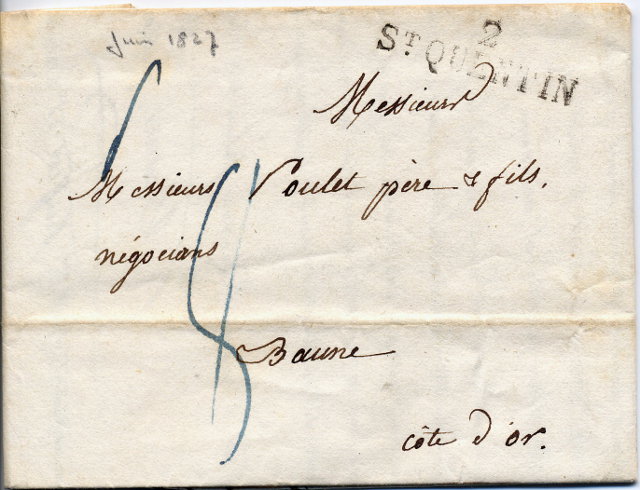 Juin 1827
2
ST QUENTIN
Messieurs
Messieurs Poulet père & fils.
négocians
Baune
côte d'or.